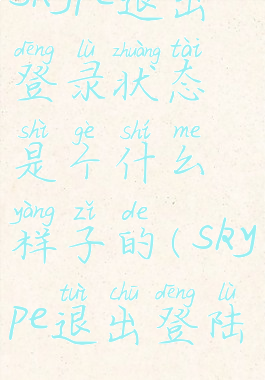 skype退出
dēng lù zhuàng tài
登录状态
shì gè shí me
是个什么
yàng zǐ de
样子的(sky
tuì chū dēng lù
pe退出登陆